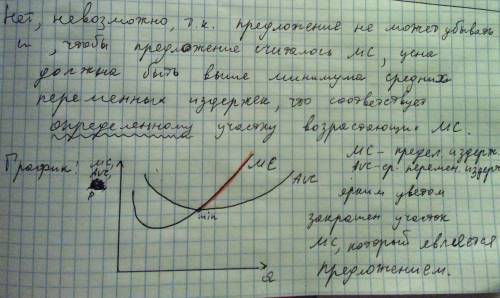 Нет, невозможно, т.к. предложение не может убывать
и, чтобы предложение считалось MC, цена
должна быть выше минимума средних
переменных издержек, что соответствует
определенному участку возрастающих MC.
График:
MC,
AVC,
P
MC
AVC
min
Q
MC - предел. издерж.
AVC - ср. перемен. издерж
ярким цветом
закрашен участок
MC, который является
предложением.